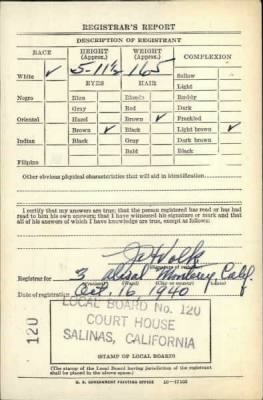 REGISTRAR'S REPORT
DESCRIPTION OF REGISTRANT
RACE HEIGHT (Approx.) WEIGHT (Approx.) COMPLEXION
White ✓ 5-11½ 165 Sallow
EYES HAIR Light
Negro Blue Blonde Ruddy
Gray Red Dark
Oriental Hazel Brown ✓ Freckled
Brown ✓ Black Light brown ✓
Indian Black Gray Dark brown
Bald Black
Filipino
Other obvious physical characteristics that will aid in identification
I certify that my answers are true; that the person registered has read or has had
read to him his own answers; that I have witnessed his signature or mark and that
all of his answers of which I have knowledge are true, except as follows:
Registrar for 3 Alisal Monterey Calif.
(Precinct) (Ward) (City or county) (State)
Date of registration Oct. 16, 1940
LOCAL BOARD No. 120
COURT HOUSE
SALINAS, CALIFORNIA
120
STAMP OF LOCAL BOARD
(The stamp of the Local Board having jurisdiction of the registrant
shall be placed in the above space.)
U. S. GOVERNMENT PRINTING OFFICE